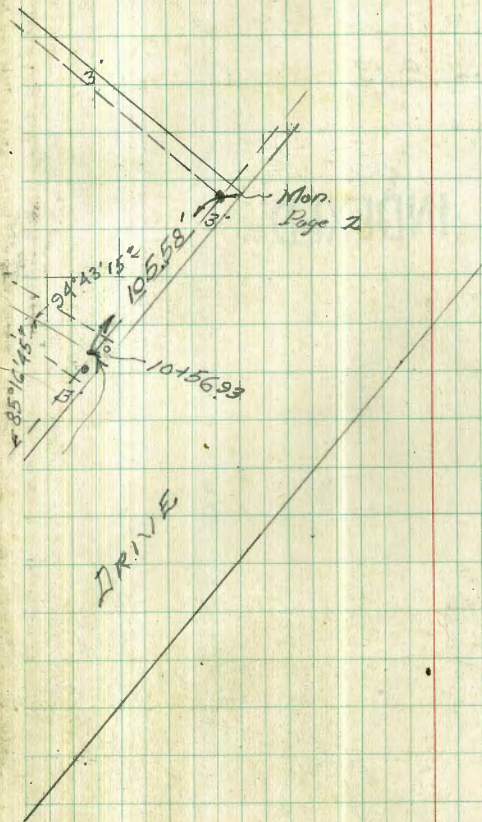 3'
Mon.
Page 2
3'
105.58'
94°43'15"
85°16'45"
10+56.93
3'
DRIVE